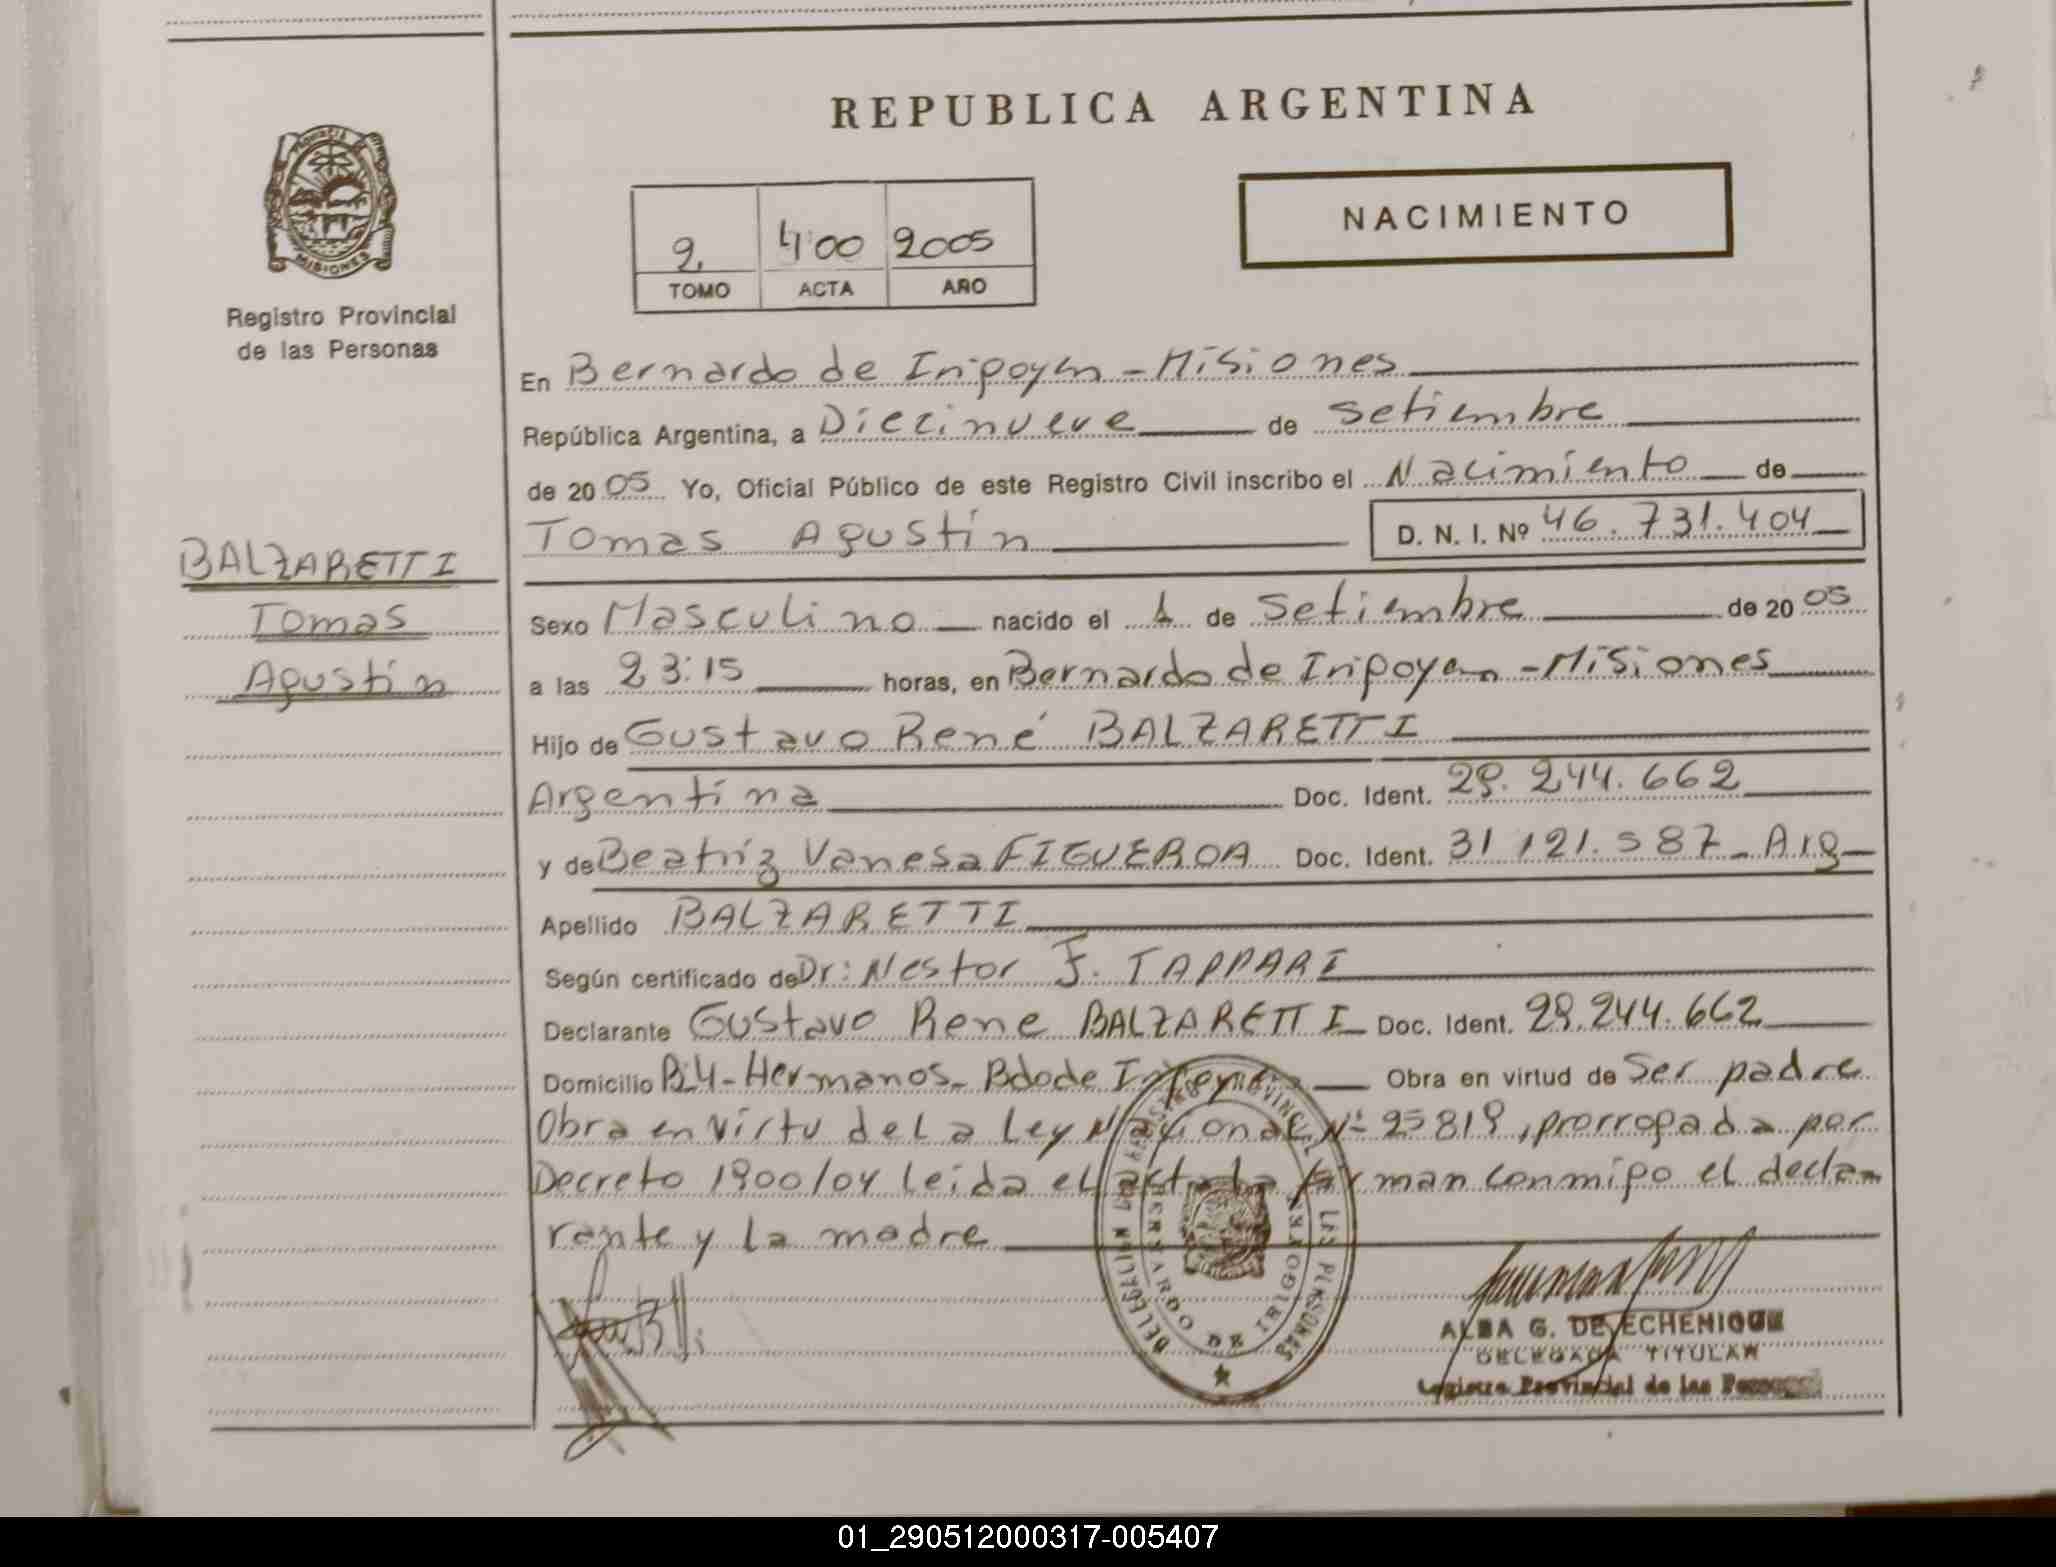 REPUBLICA ARGENTINA
PROVINCIA
MISIONES
Registro Provincial
de las Personas
NACIMIENTO
2 400 2005
TOMO ACTA AÑO
En Bernardo de Iripoyen - Misiones
República Argentina, a Diecinueve de Setiembre
de 2005 Yo, Oficial Público de este Registro Civil inscribo el Nacimiento de
Tomas Agustín D. N. I. Nº 46.731.404
BALZARETTI
Tomas
Agustín
Sexo Masculino nacido el 1 de Setiembre de 2005
a las 23:15 horas, en Bernardo de Iripoyen - Misiones
Hijo de Gustavo René BALZARETTI
Argentina Doc. Ident. 29.244.662
y de Beatríz Vanesa FIGUEROA Doc. Ident. 31 121.587 - Arg
Apellido BALZARETTI
Según certificado de Dr: Nestor F. TAPPARI
Declarante Gustavo Rene BALZARETTI Doc. Ident. 29.244.662
Domicilio Hermanos - Bdo de Obra en virtud de Ser padre
Obra en virtu de la Ley Nacional Nº 25819, prorrogada por
Decreto 1900/04 leida el acta la firman conmigo el decla-
rante y la madre
REGISTRO PROVINCIAL DE LAS PERSONAS
BERNARDO DE IRIGOYEN
ALBA G. DE ECHENIQUE
DELEGADA TITULAR
Registro Provincial de las Personas
01_290512000317-005407